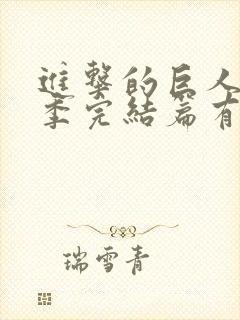 進擊的巨人
季完結篇有
瑞雪青